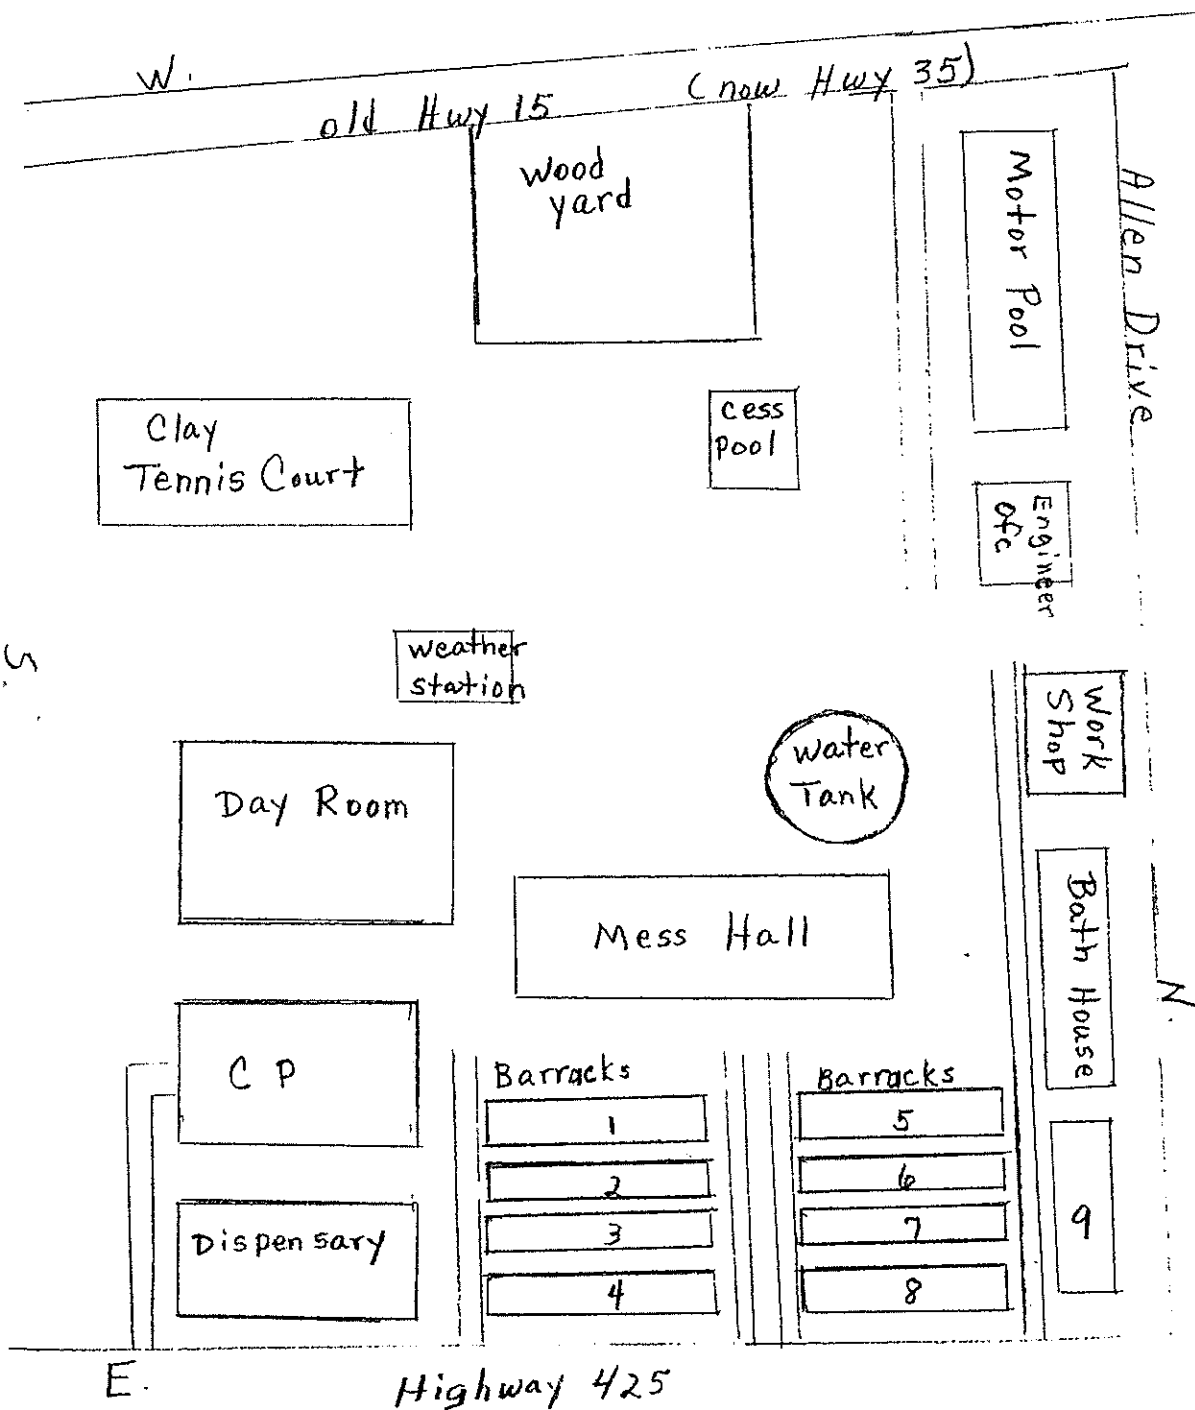 W.
old Hwy 15 (now Hwy 35)
Wood
yard
Motor Pool
Allen Drive
Clay
Tennis Court
Cess
Pool
Engineer
Ofc
S.
Weather
Station
Work
Shop
Water
Tank
Day Room
Mess Hall
Bath House
N.
C P
Barracks
1
2
3
4
Barracks
5
6
7
8
9
Dispensary
E.
Highway 425